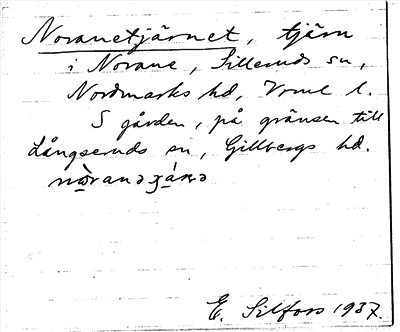 Noranetjärnet, tjärn
i Norane, Silleruds sn,
Nordmarks hd, Vrml l.
S gården, på gränsen till
Långseruds sn, Gillbergs hd.
E. Silfors 1937.